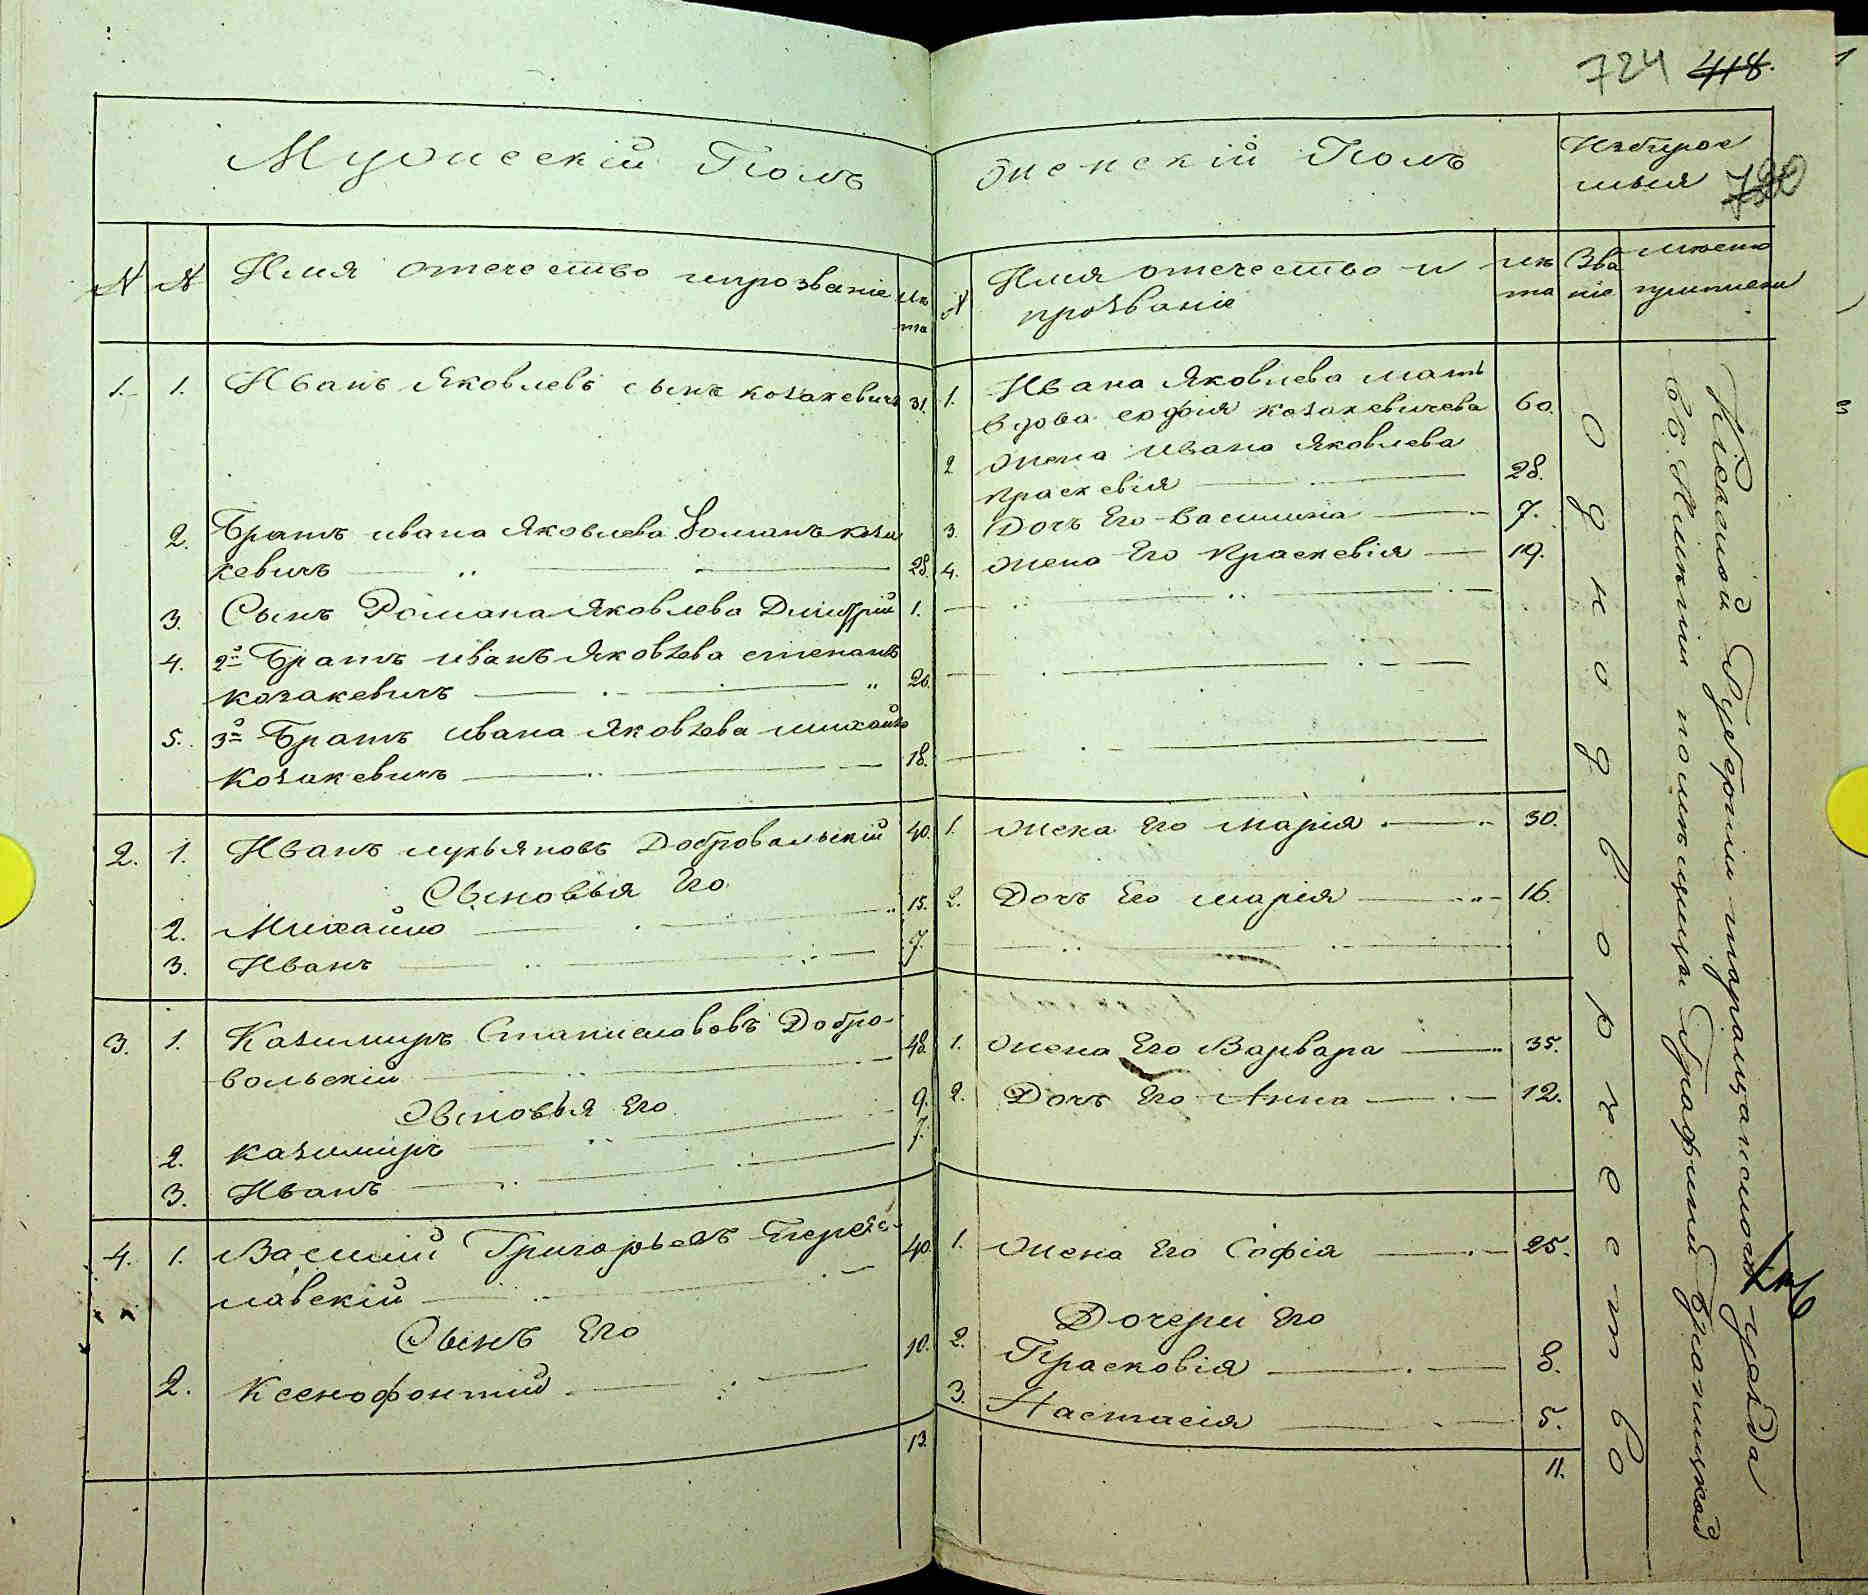 724 418.
Мужескій Полъ
N N Имя отечество ипрозваніе лѣ
та
1. 1. Иванъ Яковлевъ сынъ козакевичъ 31.
2. Братъ ивана Яковлева Романъ коза
кевичъ 28.
3. Сынъ Романа Яковлева Дмитрій 1.
4. 2й Братъ иванъ Яковлева степанъ
козакевичъ 20.
5. 3й Братъ ивана Яковлева михайло
Козакевичъ 18.
2. 1. Иванъ лукьяновъ Добровольскій 40.
Сыновья Его
2. Михайло 15.
3. Иванъ 7.
3. 1. Казимиръ Станиславовъ Добро-
вольскій 48.
Сыновья Его
2. казимиръ 9.
3. Иванъ 7.
4. 1. Василий Григорьевъ Перее-
лавскій 40.
Сынъ Его
2. Ксенофонтий 10.
13.
женскій Полъ
Избирае
мыя 720
N Имя отечество и лѣ Зва мѣсто
прозваніе та ніе приписки
1. Ивана Яковлева мать
вдова софія козакевичева 60.
2 жена ивана Яковлева
праскевія 28.
3. Дочь Его Василина 7.
4. жена Его Праскевія 19.
1. жена Его марія 30.
2. Дочь Его марія 16.
1. жена Его Варвара 35.
2. Дочь Его Анна 12.
1. жена Его Софія 25.
Дочери Его
2. Прасковія 8.
3. Настасія 5.
11.
Однодворчество
Кіевской Губерніи таращанского уезда
въ имѣніи помѣщицы Графини Браницкой